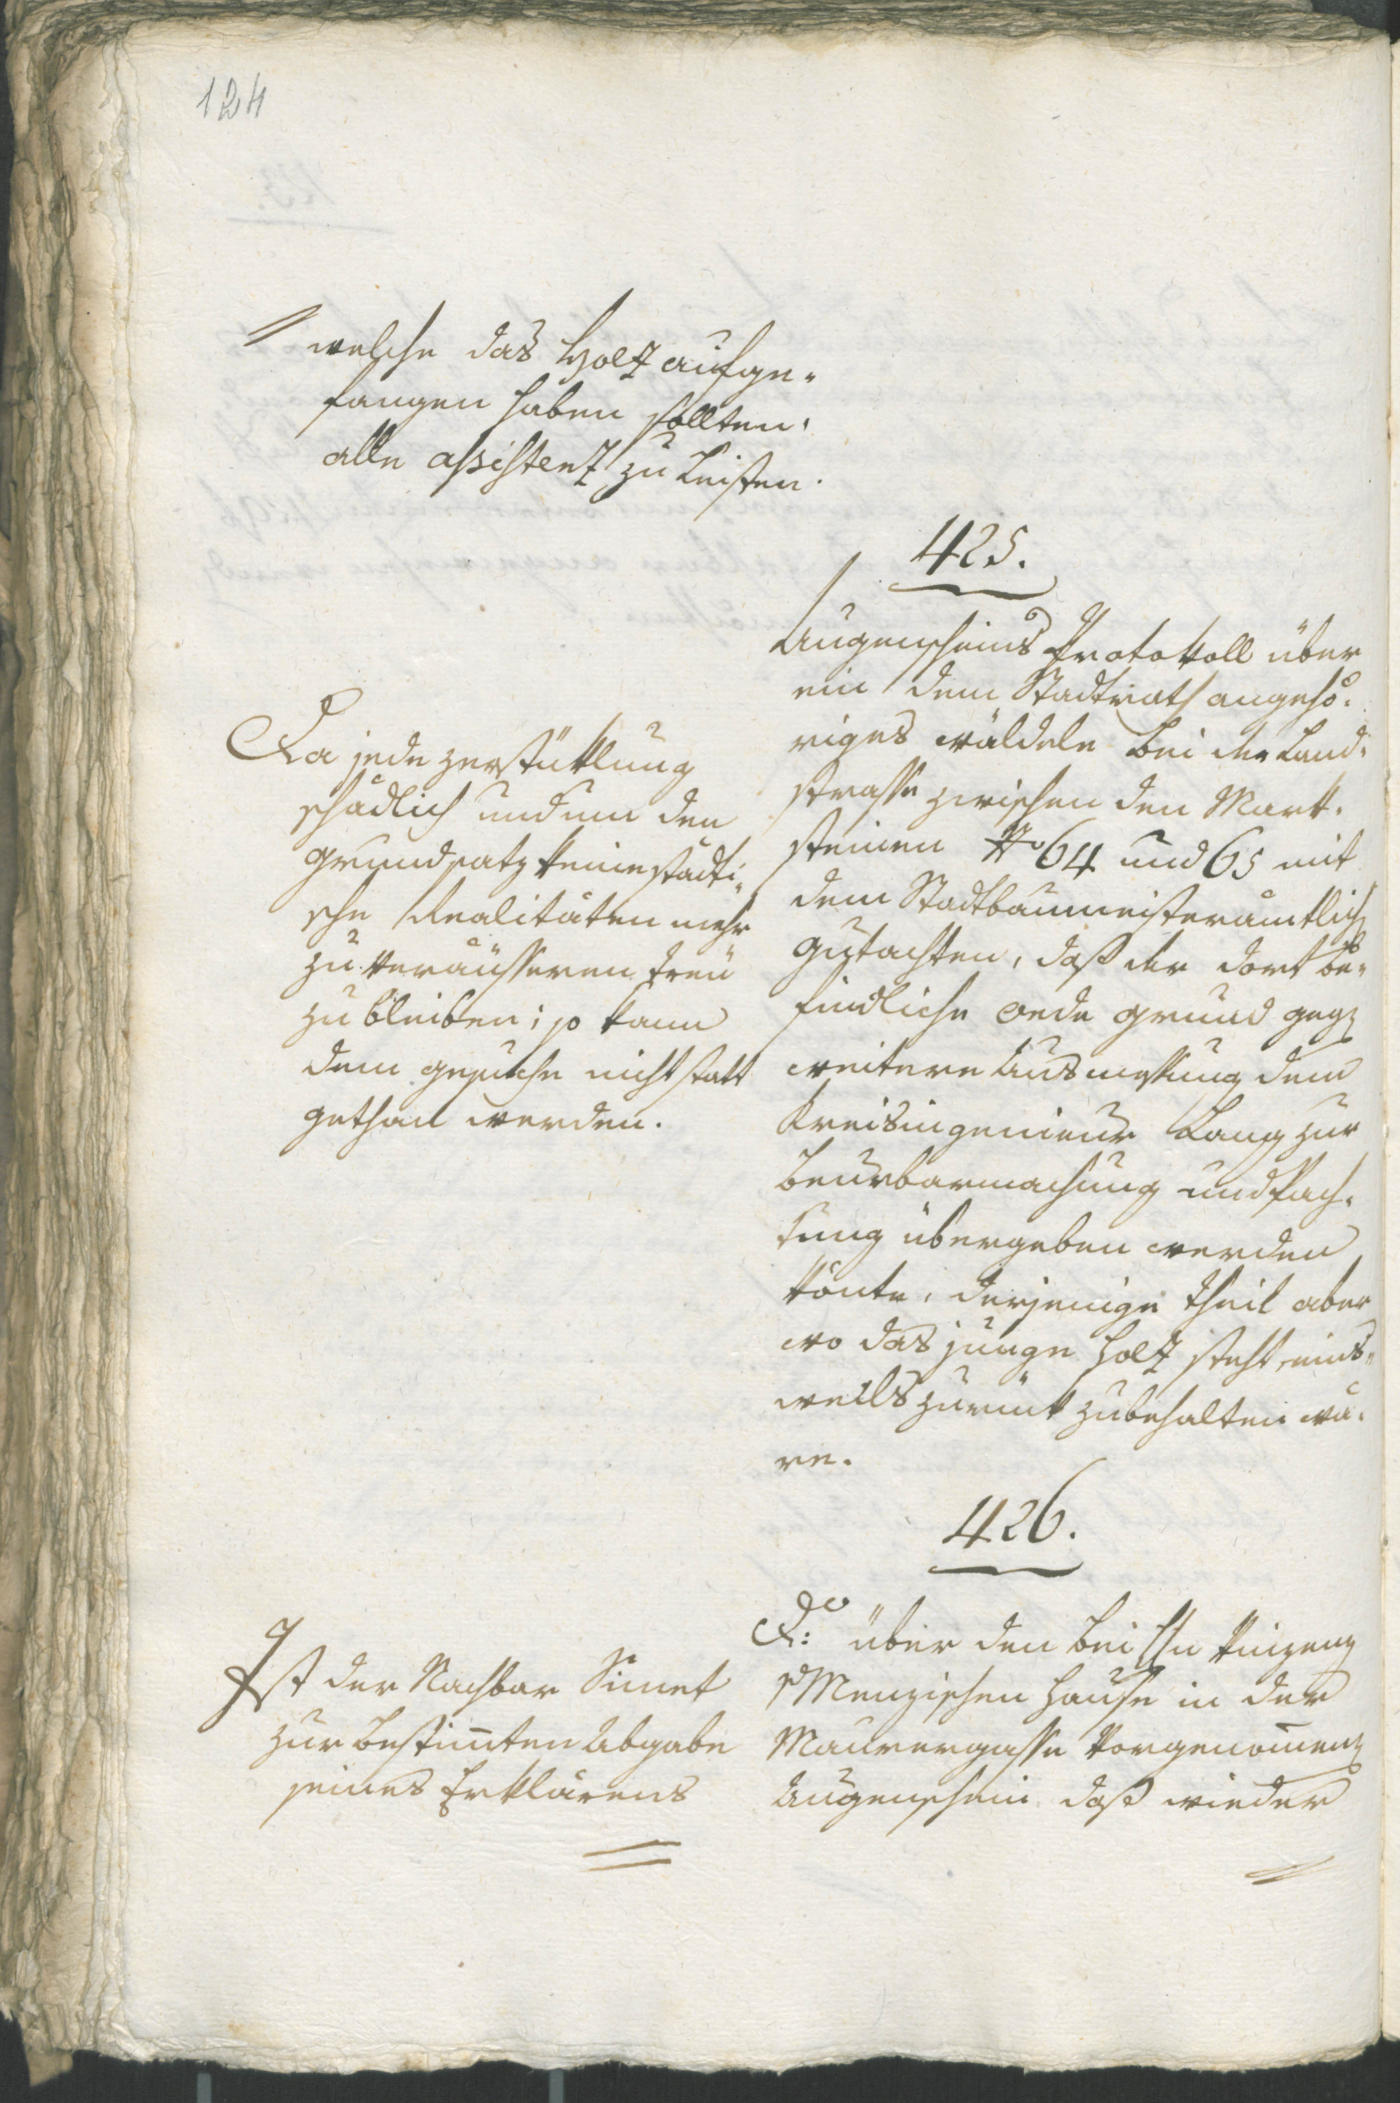 124
welche das Holz aufge-
fangen haben sollten,
alle assistenz zu leisten.
425.
Augenscheins Protokoll über
ein dem Stadtrath angehö-
riges wäldele bei der Land-
strasse zwischen den Mark-
steinen No 64 und 65 mit
dem Stadtbaumeisteramtlich
gutachten, daß der dort be-
findliche oede grund geg
weitere Ausmessung dem
Kreisingenieur Lang zur
beurbarmachung und Pach-
tung übergeben werden
könte, derjenige theil aber
wo das junge Holz steht, eins-
weils zurück zubehalten wä-
re.
Da jede zerstüklung
schädlich und um den
grundsatz keine städti-
sche Realitäten mehr
zu veräusseren treu
zu bleiben; so kann
dem gesuche nicht statt
gethan werden.
426.
Do: über den bei Hn Vinzenz
Menzischen Hause in der
Maurergasse vorgenomenen
Augenschein daß wieder
Ist der Nachbar Simet
zur bestimten Abgabe
seines Erklärens